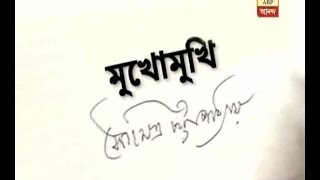 ABP
আনন্দ
মুখোমুখি
সৌমিত্র চট্টোপাধ্যায়